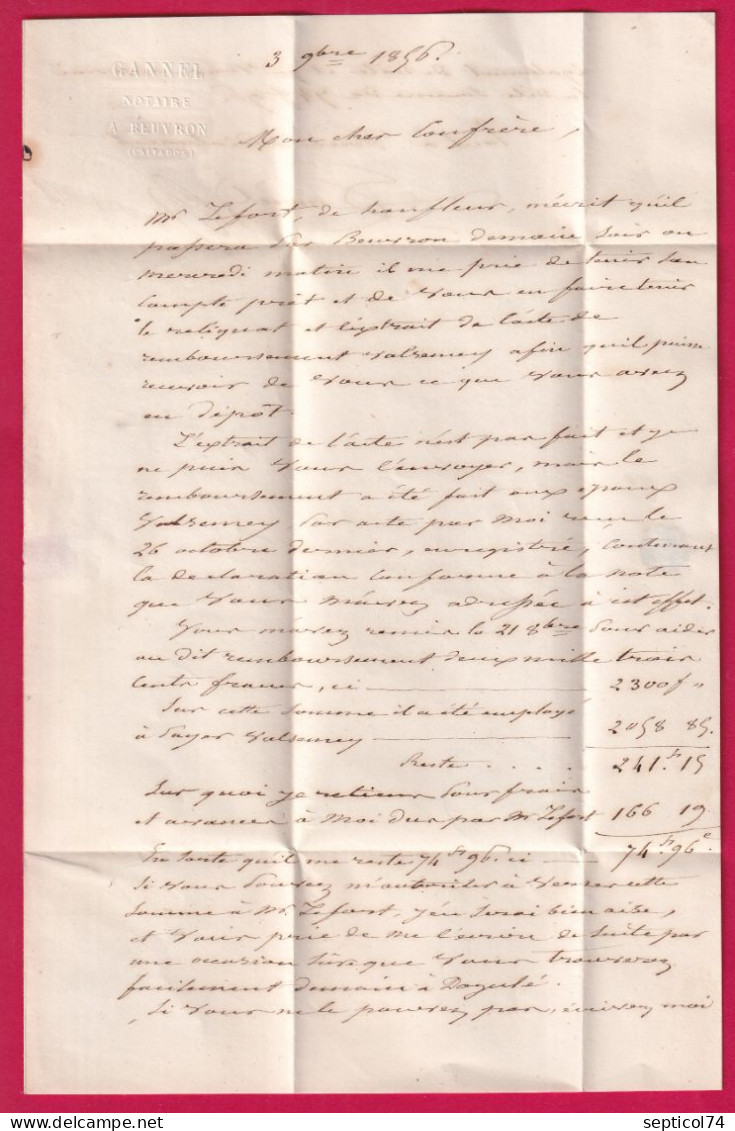 GANNEL
NOTAIRE
A BEUVRON
(CALVADOS)
3 9bre 1856.
Mon cher Confrère,
Mr Lefort, de honfleur, m'écrit qu'il
passera par Beuvron demain soir ou
mercredi matin il me prie de tenir son
compte prêt et de vous en faire tenir
le reliquat et l'extrait de l'acte de
remboursement Valsemey afin qu'il puisse
recevoir de vous ce que vous avez
en dépôt.
L'extrait de l'acte n'est pas fait et je
ne puis vous l'envoyer, mais le
remboursement a été fait aux époux
Valsemey par acte par moi reçu le
26 octobre dernier, enregistré, contenant
la déclaration conforme à la note
que vous m'avez adressée à cet effet.
Vous m'avez remis le 21 8bre pour aider
au dit remboursement deux mille trois
cents francs, ci — 2300f "
Sur cette somme il a été employé
à payer Valsemey — 2058 85.
Reste . . . . 241.f 15
Sur quoi je retiens pour frais
et avances à moi dus par Mr Lefort 166 19
En sorte qu'il me reste 74f 96. ci — 74f 96c
Si vous pouvez m'autoriser à verser cette
somme à Mr Lefort, j'en serai bien aise,
et vous prie de me l'écrire de suite par
une occasion sûre que vous trouverez
facilement demain à Dozulé.
Si vous ne le pouvez pas, écrivez moi
septicol74